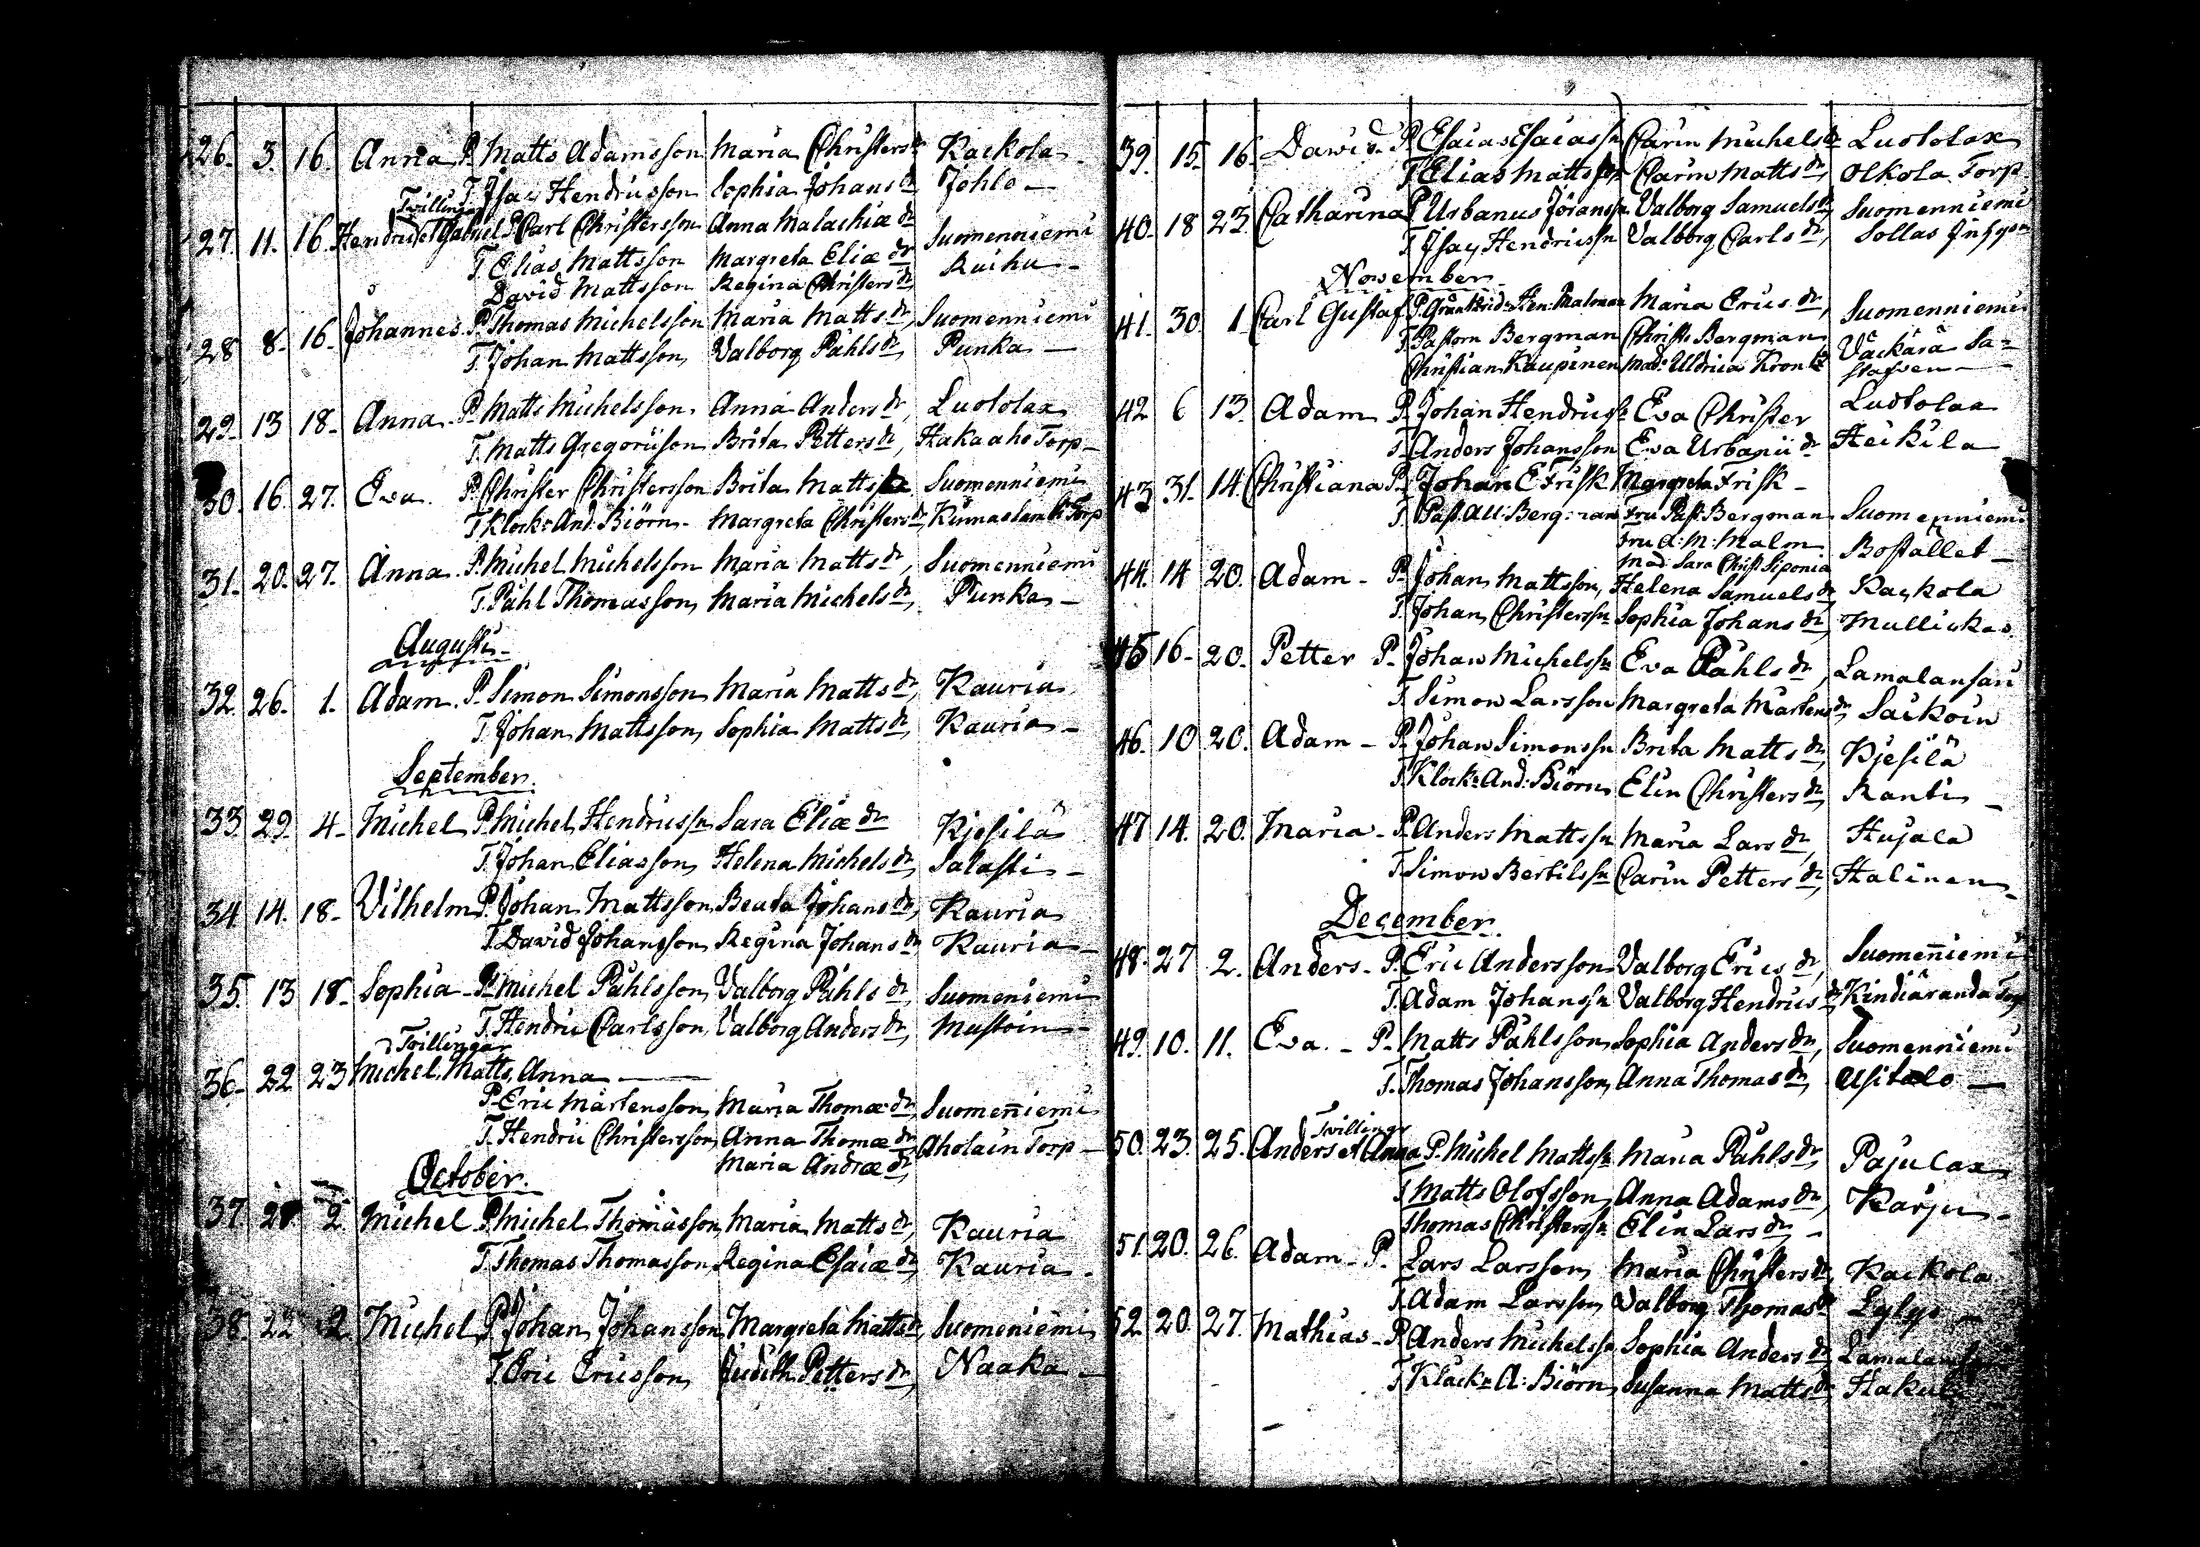 26. 3. 16. Anna P. Matts Adamsson Maria Christersdr Kaikola
T. Isay Hendricsson Sophia Johansdr Johlo
Tvillingar
27. 11. 16. Hendric et Gabriel P. Carl Christersson Anna Malachiædr Suomenniemi
T. Elias Mattsson Margreta Eliædr Kuihu
David Mattsson Regina Christersdr
28 8. 16. Johannes P. Thomas Michelsson Maria Mattsdr Suomenniemi
T. Johan Mattsson Valborg Påhlsdr Punka
29. 13 18. Anna P. Matts Michelsson Anna Andersdr Luotolax
T. Matts Gregoriison Brita Pettersdr Hakaaho Torp
30. 16. 27. Eva. P. Christer Christersson Brita Matts Suomenniemi
T. Klock. And. Biörn Margreta Christersdr Kinnaslambi Torp
31. 20. 27. Anna. P. Michel Michelsson Maria Mattsdr Suomenniemi
T. Påhl Thomasson Maria Michelsdr Punka
Augusti
32. 26. 1. Adam. P. Simon Simonsson Maria Mattsdr Kauria
T. Johan Mattsson Sophia Mattsdr Kauria
September.
33. 29. 4. Michel P. Michel Hendricssn Sara Eliædr Kjesilä
T. Johan Eliasson Helena Michelsdr Salasti
34 14. 18. Vilhelm P. Johan Mattsson Beata Johansdr Kauria
T. David Johansson Regina Johansdr Kauria
35. 13 18. Sophia P. Michel Påhlsson Valborg Påhlsdr Suomeniemi
T. Hendric Carlsson Valborg Andersdr Mustoin
Tvillingar
36. 22 23 Michel, Matts, Anna
P. Eric Mårtensson Maria Thomædr Suomen̄iemi
T. Hendric Christersson Anna Thomædr Aholain Torp
Maria Andrædr
October.
37. 2 Michel P. Michel Thomasson Maria Mattsdr Kauria
T. Thomas Thomasson Regina Esaiædr Kauria
38. 22 2. Michel P. Johan Johansson Margreta Mattsdr Suomeniemi
T. Eric Ericsson Judith Pettersdr Naaka
39. 15. 16. David. P. Esaias Esaiassn Carin Michelsdr Luotolax
T. Elias Mattsson Carin Mattsdr Olkola Torp
40. 18 23. Catharina P. Urbanus Göranssn Valborg Samuelsdr Suomenniemi
T. Isay Hendricssn Valborg Carlsdr Sollas
November.
41. 30. 1 Carl Gustaf P. Hen. Malman Maria Ericsdr Suomenniemi
T. Pastorn Bergman Christ. Bergman Väckärä Sa-
Christian Kaupinen Mad. Uldrica Kron
42. 6 13. Adam P. Johan Hendricssn Eva Christer Luotolax
T. Anders Johansson Eva Urbaniidr Heikila
43 31. 14. Christiana P. Johan E Frisk Margreta Frisk
T. Past. All. Bergman Fru Past. Bergman Suomenniemi
Fru A. M. Malm. Bostället
Mad. Sara Christ. Siponia
44. 14 20. Adam P. Johan Mattsson Helena Samuelsdr Kaykola
T. Johan Christerssn Sophia Johansdr Mullickas
45 16 20. Petter P. Johan Michelssn Eva Påhlsdr Lamalansari
T. Simon Larsson Margreta Mårtensdr Säikoin
46. 10 20. Adam P. Johan Simonssn Brita Mattsdr Kjesilä
T. Klock. And. Biörn Elin Christersdr Ranti
47 14. 20. Maria P. Anders Mattssn Maria Larsdr Hujala
T. Simon Bertilssn Carin Pettersdr Halinen
December.
48. 27 2. Anders P. Eric Andersson Valborg Ericsdr Suomen̄iemi
T. Adam Johanssn Valborg Hendricsdr Kindiäranda Torp
49. 10. 11. Eva. P. Matts Påhlsson Sophia Andersdr Suomenniemi
T. Thomas Johansson Anna Thomasdr Usitalo
Tvillingar
50. 23. 25. Anders et Anna P. Michel Mattssn Maria Påhlsdr Pajulax
T. Matts Olofsson Anna Adamsdr Karju
Thomas Christerssn Elin Larsdr
51. 20. 26. Adam P. Lars Larsson Maria Christersdr Kaikola
T. Adam Larsson Valborg Thomasdr Lyly
52. 20. 27. Mathias P. Anders Michelssn Sophia Andersdr
T. Klock. A. Biörn Susanna Mattsdr